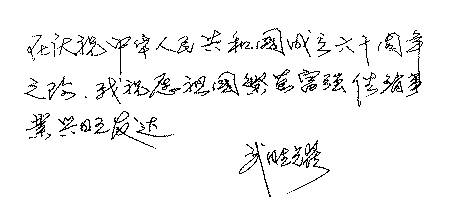 在庆祝中华人民共和国成立六十周年
之际，我祝愿祖国繁荣富强体育事
业兴旺发达